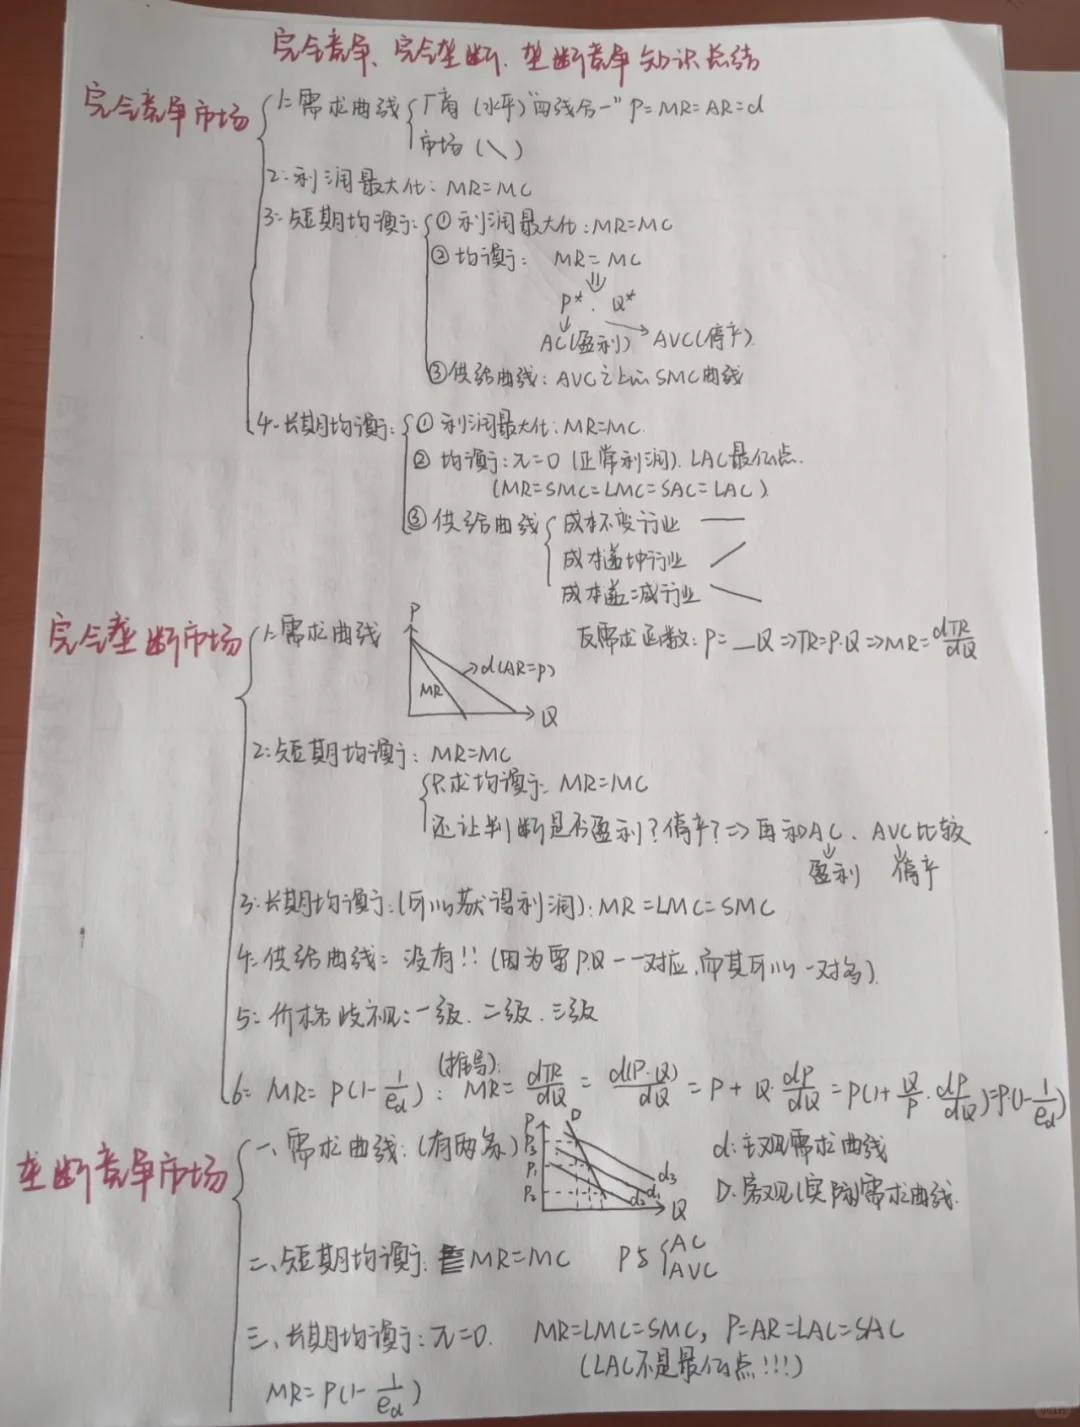 完全竞争、完全垄断、垄断竞争知识总结
完全竞争市场
1: 需求曲线 厂商 (水平) "四线合一" P=MR=AR=d
市场 (＼)
2: 利润最大化: MR=MC
3: 短期均衡: ① 利润最大化: MR=MC
② 均衡: MR=MC
⇓
P*. Q*
AC(盈利) AVC(停产).
③ 供给曲线: AVC之上的SMC曲线
4: 长期均衡: ① 利润最大化: MR=MC
② 均衡: π=0 (正常利润). LAC最低点.
(MR=SMC=LMC=SAC=LAC)
③ 供给曲线 成本不变行业
成本递增行业
成本递减行业
完全垄断市场
1: 需求曲线
P
d(AR=P)
MR
Q
反需求函数: P=__Q⇒TR=P·Q⇒MR=dTR/dQ
2: 短期均衡: MR=MC
只求均衡: MR=MC
还让判断是否盈利?停产?⇒再和AC、AVC比较
盈利 停产
3: 长期均衡: (可以获得利润): MR=LMC=SMC
4: 供给曲线: 没有!! (因为需P.Q一一对应,而其可以一对多).
5: 价格歧视: 一级. 二级. 三级
6: MR=P(1-1/ed): (推导): MR=dTR/dQ=d(P·Q)/dQ=P+Q·dP/dQ=P(1+Q/P·dP/dQ)=P·(1-1/ed)
垄断竞争市场
一、需求曲线: (有两条)
P D
P3
P1
P2
d3
d1
d2
Q
d: 主观需求曲线
D: 客观(实际)需求曲线.
二、短期均衡: MR=MC P与 AC
AVC
三、长期均衡: π=0. MR=LMC=SMC, P=AR=LAC=SAC
(LAC不是最低点!!!)
MR=P(1-1/ed)